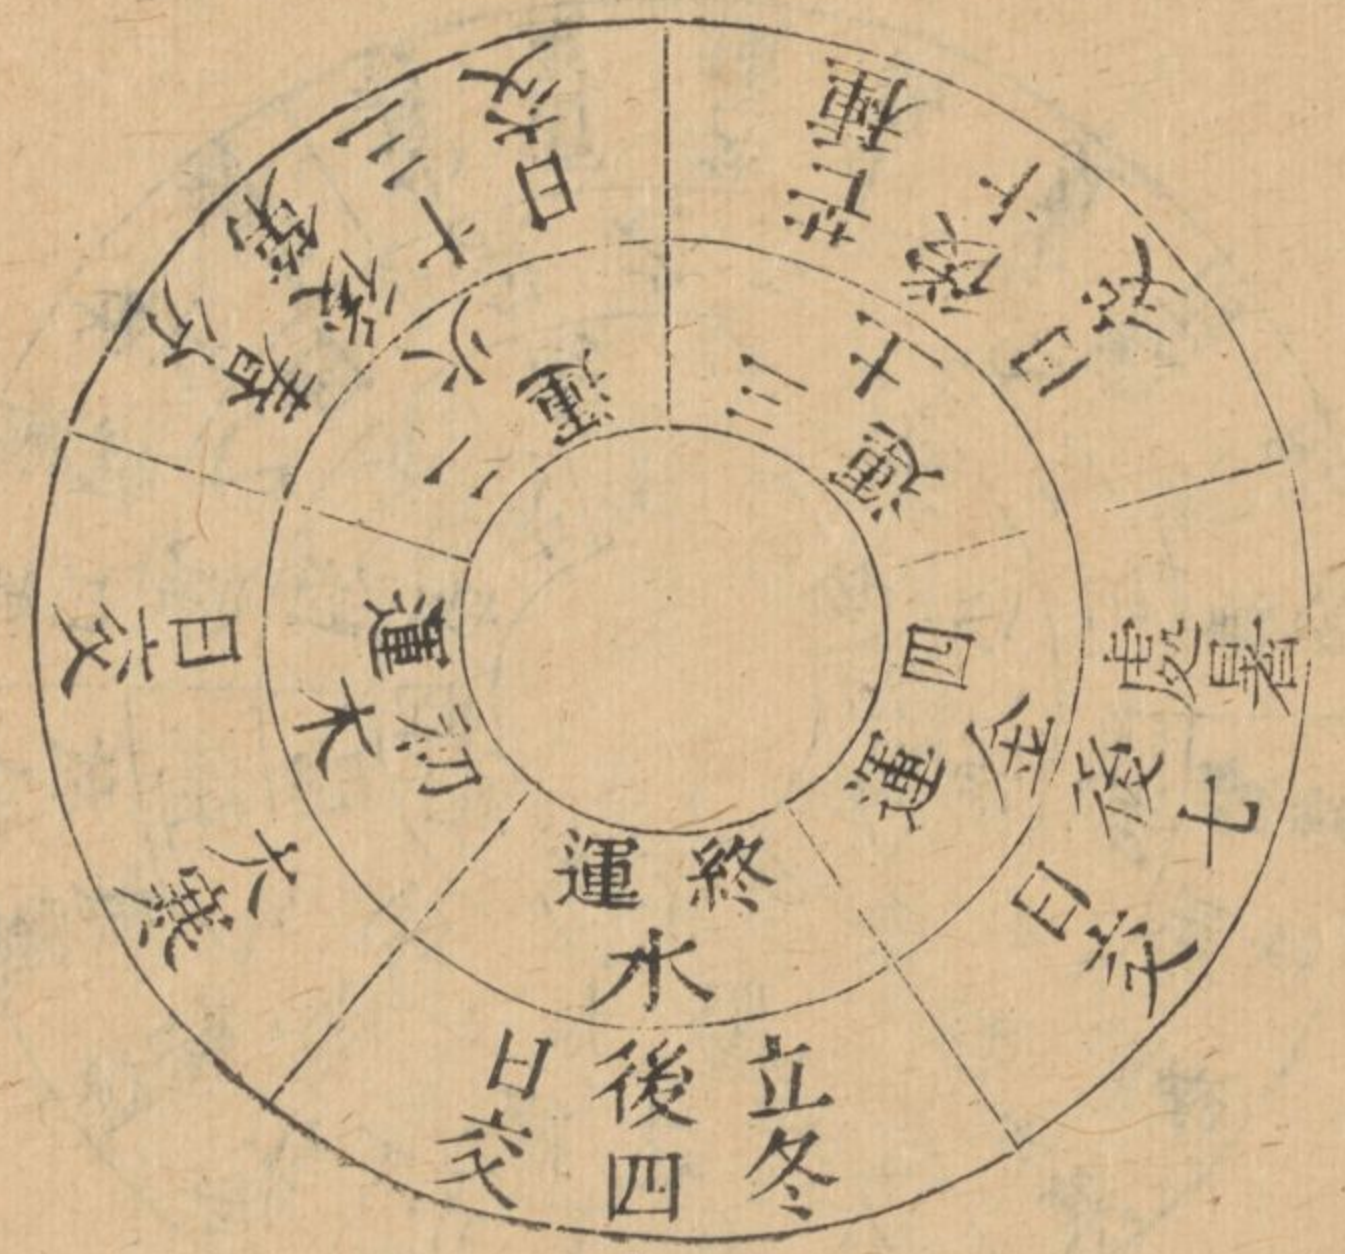 初運
木
大寒
日交
二運
火
春分
十三
日交
三運
土
芒種
後十
日交
四運
金
處暑
後七
日交
終運
水
立冬
後四
日交